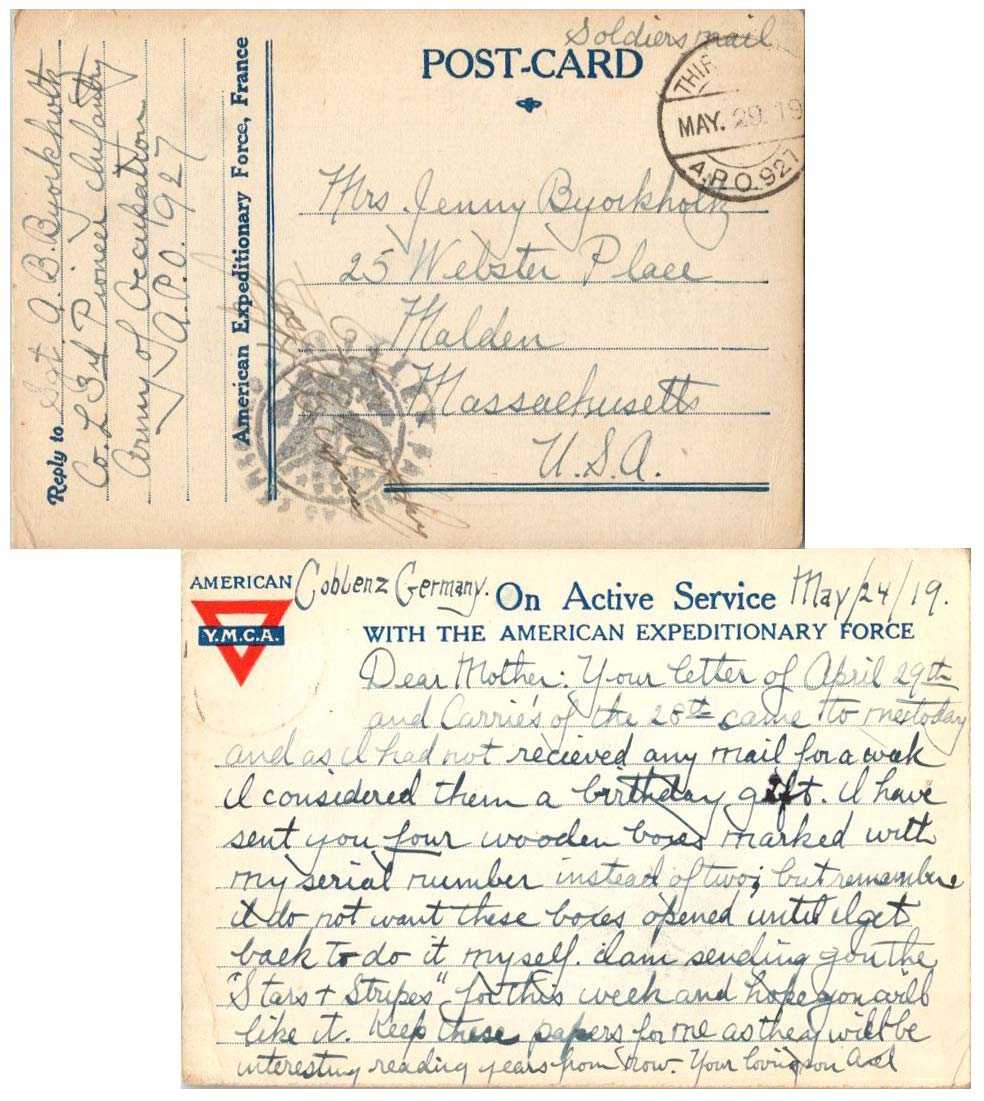 Soldiers mail
POST-CARD
MAY. 29. 19
A.P.O. 927
Reply to Sgt A. B. Byorkholtz
Co. L 3rd Pioneer Infantry
Army of Occupation
A.P.O. 927
American Expeditionary Force, France
Mrs. Jenny Byorkholtz
25 Webster Place
Malden
Massachusetts
U.S.A.
AMERICAN
Y.M.C.A.
Coblenz Germany.
On Active Service
May/24/19.
WITH THE AMERICAN EXPEDITIONARY FORCE
Dear Mother: Your letter of April 29th
and Carrie's of the 28th came to me today
and as I had not recieved any mail for a week
I considered them a birthday gift. I have
sent you four wooden boxes marked with
my serial number instead of two; but remember
I do not want these boxes opened until I get
back to do it myself. I am sending you the
"Stars + Stripes" for this week and hope you will
like it. Keep these papers for me as they will be
interesting reading years from now. Your loving son Axel